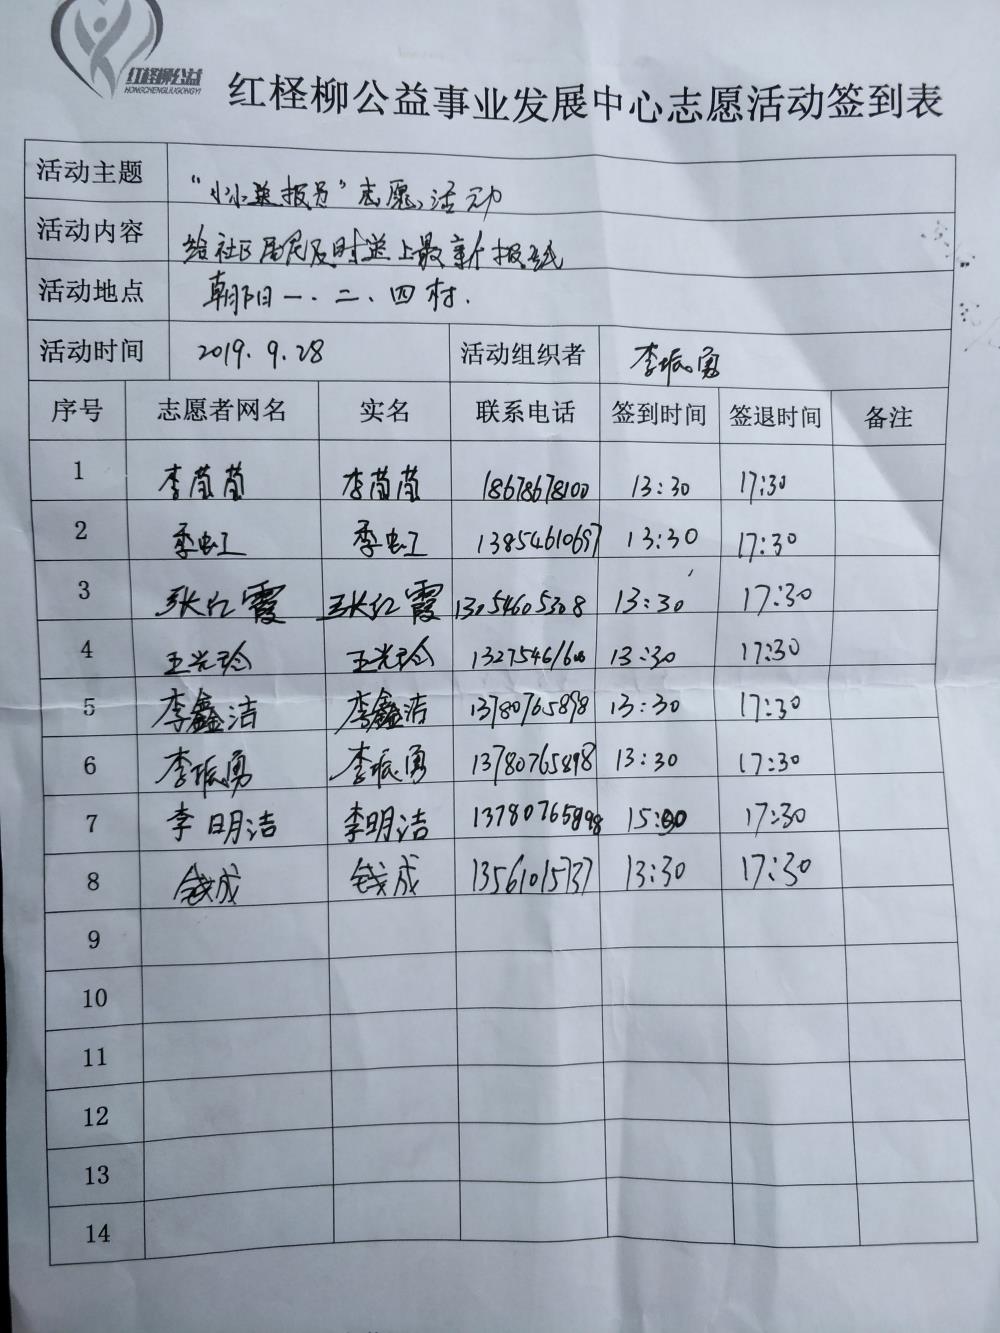 红柽柳公益
HONGCHENGLIUGONGYI
红柽柳公益事业发展中心志愿活动签到表
活动主题 “小小送报员”志愿活动
活动内容 给社区居民及时送上最新报纸
活动地点 朝阳一、二、四村.
活动时间 2019.9.28 活动组织者 李振勇
序号 志愿者网名 实名 联系电话 签到时间 签退时间 备注
1 李莺莺 李莺莺 18678678100 13:30 17:30
2 季虹 季虹 13854610697 13:30 17:30
3 张红霞 张红霞 13054605308 13:30 17:30
4 王光玲 王光玲 13:30 17:30
5 李鑫洁 李鑫洁 13780765898 13:30 17:30
6 李振勇 李振勇 13780765898 13:30 17:30
7 李明洁 李明洁 13780765898 15:00 17:30
8 钱成 钱成 13561015737 13:30 17:30
9
10
11
12
13
14